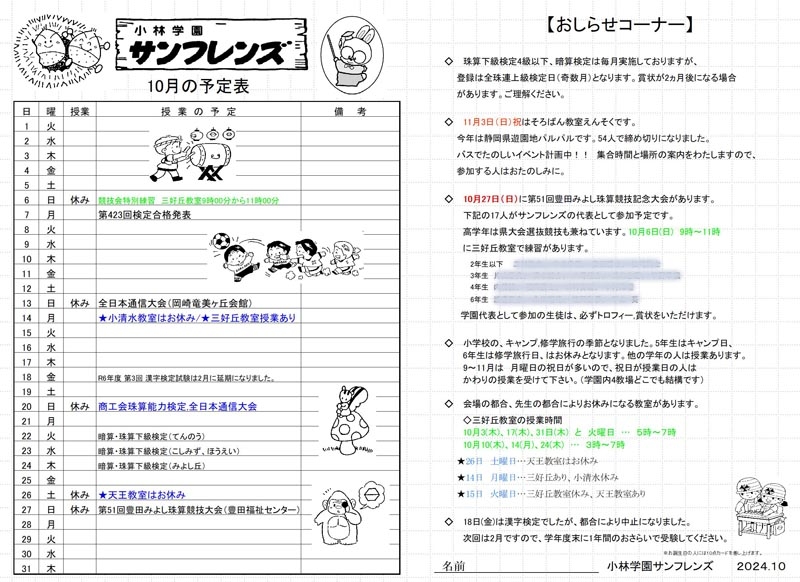 小林学園
サンフレンズ
10月の予定表
日 曜 授業 授業の予定 備考
1 火
2 水
3 木
4 金
5 土
6 日 休み 競技会特別練習 三好丘教室9時00分から11時00分
7 月 第423回検定合格発表
8 火
9 水
10 木
11 金
12 土
13 日 休み 全日本通信大会(岡崎竜美ヶ丘会館)
14 月 ★小清水教室はお休み/★三好丘教室授業あり
15 火
16 水
17 木
18 金 R6年度 第3回 漢字検定試験は2月に延期になりました。
19 土
20 日 休み 商工会珠算能力検定,全日本通信大会
21 月
22 火 暗算・珠算下級検定(てんのう)
23 水 暗算・珠算下級検定(こしみず、ほうえい)
24 木 暗算・珠算下級検定(みよし丘)
25 金
26 土 休み ★天王教室はお休み
27 日 休み 第51回豊田みよし珠算競技大会(豊田福祉センター)
28 月
29 火
30 水
31 木
【おしらせコーナー】
◇ 珠算下級検定4級以下、暗算検定は毎月実施しておりますが、
登録は全珠連上級検定日(奇数月)となります。賞状が2ヵ月後になる場合
があります。ご理解ください。
◇ 11月3日(日)祝はそろばん教室えんそくです。
今年は静岡県遊園地パルパルです。54人で締め切りになりました。
バスでたのしいイベント計画中!! 集合時間と場所の案内をわたしますので、
参加する人はおたのしみに。
◇ 10月27日(日)に第51回豊田みよし珠算競技記念大会があります。
下記の17人がサンフレンズの代表として参加予定です。
高学年は県大会選抜競技も兼ねています。10月6日(日) 9時~11時
に三好丘教室で練習があります。
2年生以下
3年生
4年生
6年生
学園代表として参加の生徒は、必ずトロフィー,賞状をいただけます。
◇ 小学校の、キャンプ,修学旅行の季節となりました。5年生はキャンプ日、
6年生は修学旅行日、はお休みとなります。他の学年の人は授業あります。
9~11月は 月曜日の祝日が多いので、祝日が授業日の人は
かわりの授業を受けて下さい。(学園内4教場どこでも結構です)
◇ 会場の都合、先生の都合によりお休みになる教室があります。
◇三好丘教室の授業時間
10月3(木)、17(木)、31日(木) と 火曜日 … 5時~7時
10月10(木)、14(月)、24(木) … 3時~7時
★26日 土曜日…天王教室はお休み
★14日 月曜日…三好丘あり、小清水休み
★15日 火曜日…三好丘教室休み、天王教室あり
◇ 18日(金)は漢字検定でしたが、都合により中止になりました。
次回は2月ですので、学年度末に1年間のおさらいで受験してください。
※お誕生日の人には10点カードを差し上げます。
名前 小林学園サンフレンズ 2024.10